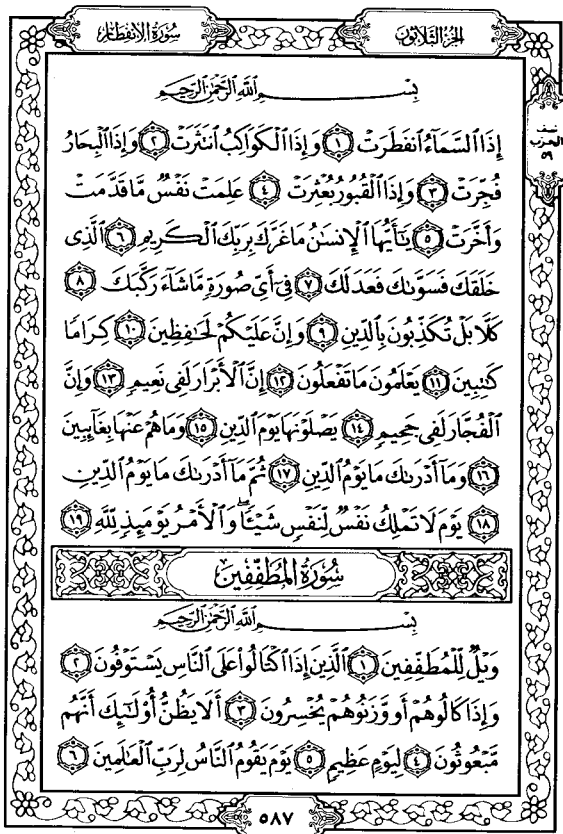 سُورَةُ الانفِطَار
الجُزْءُ الثَّلَاثُونَ
نصف
الحزب
٥٩
بِسْمِ اللَّهِ الرَّحْمَٰنِ الرَّحِيمِ
إِذَا السَّمَاءُ انفَطَرَتْ ١ وَإِذَا الْكَوَاكِبُ انتَثَرَتْ ٢ وَإِذَا الْبِحَارُ
فُجِّرَتْ ٣ وَإِذَا الْقُبُورُ بُعْثِرَتْ ٤ عَلِمَتْ نَفْسٌ مَّا قَدَّمَتْ
وَأَخَّرَتْ ٥ يَٰٓأَيُّهَا الْإِنسَٰنُ مَا غَرَّكَ بِرَبِّكَ الْكَرِيمِ ٦ الَّذِى
خَلَقَكَ فَسَوَّىٰكَ فَعَدَلَكَ ٧ فِىٓ أَىِّ صُورَةٍ مَّا شَآءَ رَكَّبَكَ ٨
كَلَّا بَلْ تُكَذِّبُونَ بِالدِّينِ ٩ وَإِنَّ عَلَيْكُمْ لَحَٰفِظِينَ ١٠ كِرَامًا
كَٰتِبِينَ ١١ يَعْلَمُونَ مَا تَفْعَلُونَ ١٢ إِنَّ الْأَبْرَارَ لَفِى نَعِيمٍ ١٣ وَإِنَّ
الْفُجَّارَ لَفِى جَحِيمٍ ١٤ يَصْلَوْنَهَا يَوْمَ الدِّينِ ١٥ وَمَا هُمْ عَنْهَا بِغَآئِبِينَ
١٦ وَمَآ أَدْرَىٰكَ مَا يَوْمُ الدِّينِ ١٧ ثُمَّ مَآ أَدْرَىٰكَ مَا يَوْمُ الدِّينِ
١٨ يَوْمَ لَا تَمْلِكُ نَفْسٌ لِّنَفْسٍ شَيْـًٔا ۖ وَالْأَمْرُ يَوْمَئِذٍ لِّلَّهِ ١٩
سُورَةُ المُطَفِّفِينَ
بِسْمِ اللَّهِ الرَّحْمَٰنِ الرَّحِيمِ
وَيْلٌ لِّلْمُطَفِّفِينَ ١ الَّذِينَ إِذَا اكْتَالُوا۟ عَلَى النَّاسِ يَسْتَوْفُونَ ٢
وَإِذَا كَالُوهُمْ أَو وَّزَنُوهُمْ يُخْسِرُونَ ٣ أَلَا يَظُنُّ أُو۟لَٰٓئِكَ أَنَّهُم
مَّبْعُوثُونَ ٤ لِيَوْمٍ عَظِيمٍ ٥ يَوْمَ يَقُومُ النَّاسُ لِرَبِّ الْعَٰلَمِينَ ٦
٥٨٧